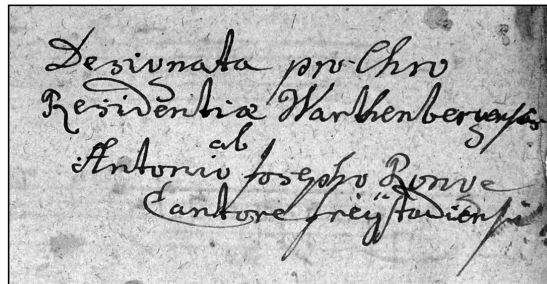 Designata pro Chro
Residentiæ Warthenbergensis
ab
Antonio Josepho Ronge
Cantore freÿstadiensi